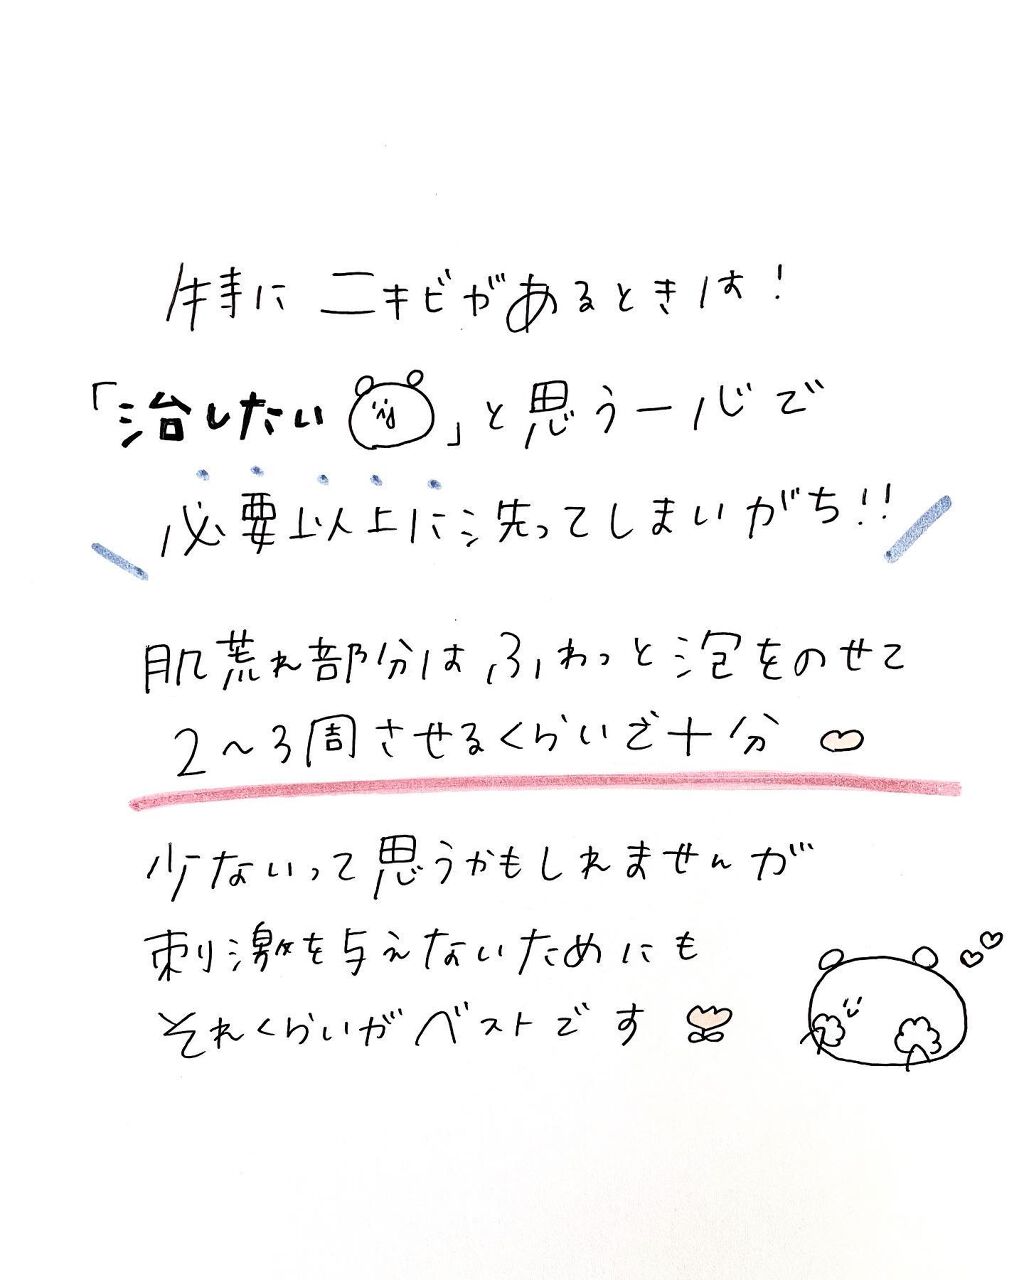 特に ニキビがあるときは!
「治したい」と思う一心で
必要以上に洗ってしまいがち!!
肌荒れ部分は ふわっと 泡をのせて
2〜3周させるくらいで十分
少ないって思うかもしれませんが
刺激を与えないためにも
それくらいがベストです